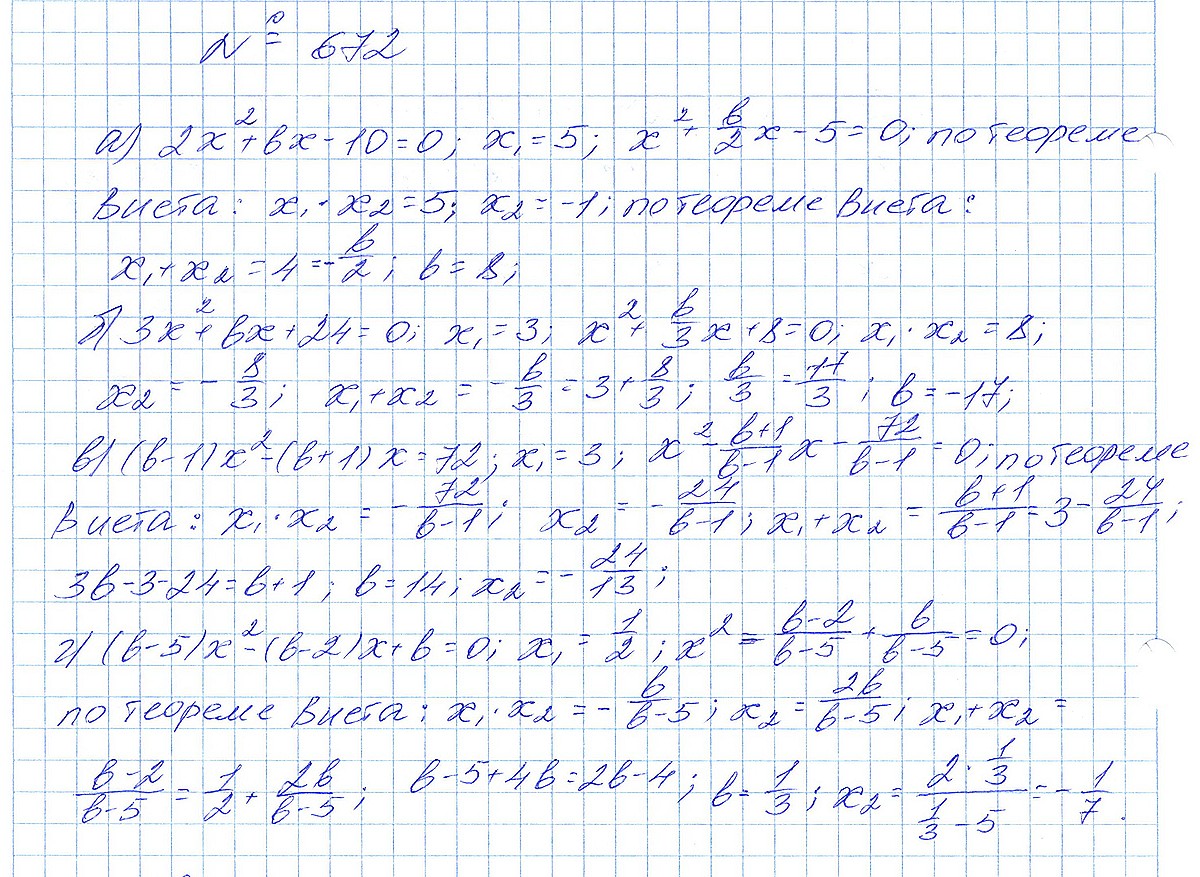 № 672
а) 2x² + bx - 10 = 0; x₁ = 5; x² + b/2 x - 5 = 0; по теореме
Виета: x₁ · x₂ = 5; x₂ = -1; по теореме Виета:
x₁ + x₂ = 4 = -b/2; b = 8;
б) 3x² + bx + 24 = 0; x₁ = 3; x² + b/3 x + 8 = 0; x₁ · x₂ = 8;
x₂ = - 8/3; x₁ + x₂ = - b/3 = 3 + 8/3; b/3 = 17/3; b = -17;
в) (b-1)x² - (b+1)x = 72; x₁ = 3; x² - (b+1)/(b-1) x - 72/(b-1) = 0; по теореме
Виета: x₁ · x₂ = - 72/(b-1); x₂ = - 24/(b-1); x₁ + x₂ = (b+1)/(b-1) = 3 - 24/(b-1);
3b - 3 - 24 = b + 1; b = 14; x₂ = - 24/13;
г) (b-5)x² - (b-2)x + b = 0; x₁ = 1/2; x² = (b-2)/(b-5) + b/(b-5) = 0;
по теореме Виета: x₁ · x₂ = - b/(b-5); x₂ = 2b/(b-5); x₁ + x₂ =
(b-2)/(b-5) = 1/2 + 2b/(b-5); b - 5 + 4b = 2b - 4; b = 1/3; x₂ = (2 · 1/3)/(1/3 - 5) = - 1/7.